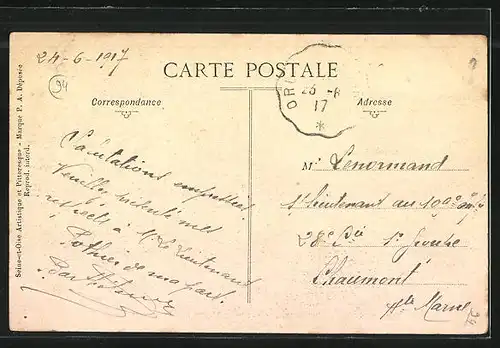 24-6-1917
94
CARTE POSTALE
Correspondance
Adresse
ORL
25 -6
17
*
Seine-et-Oise Artistique et Pittoresque - Marque P. A. Déposée
Reprod. interd.
Salutations empressées
Veuillez présenter mes
respects à Mr le Lieutenant
de ma part.
Mr Lenormand
s/Lieutenant au 109e
28e Bie
Chaumont
Hte Marne